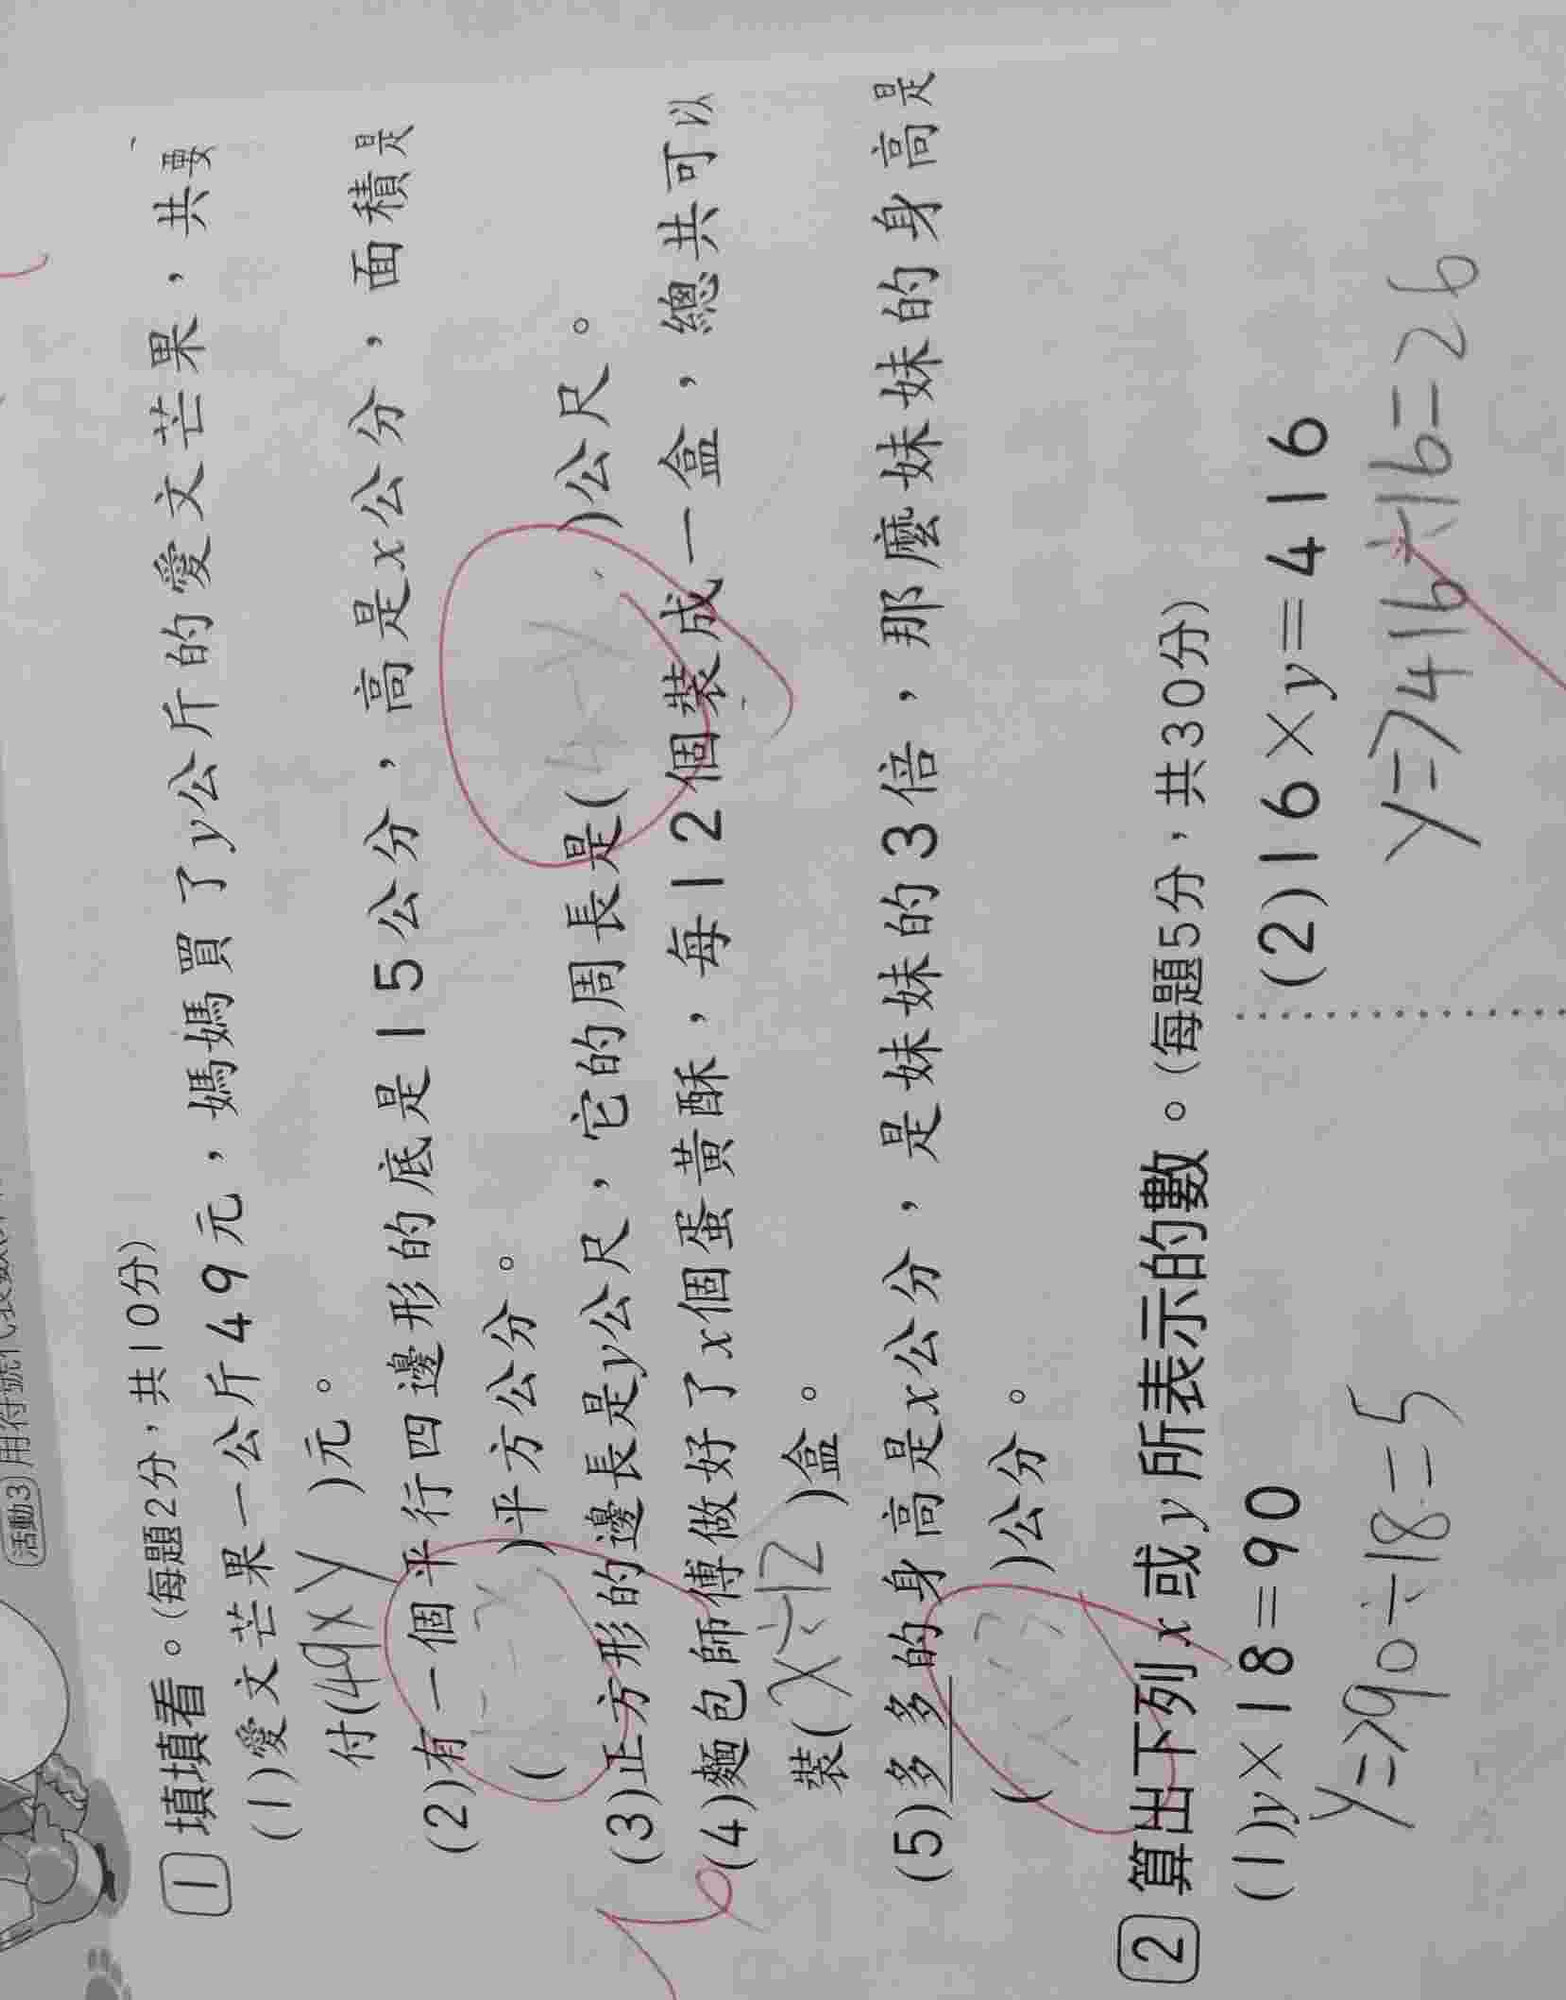 活動3 用符號代表數
1 填填看。(每題2分，共10分)
(1)愛文芒果一公斤49元，媽媽買了y公斤的愛文芒果，共要
付(49×y)元。
(2)有一個平行四邊形的底是15公分，高是x公分，面積是
( )平方公分。
(3)正方形的邊長是y公尺，它的周長是( )公尺。
(4)麵包師傅做好了x個蛋黃酥，每12個裝成一盒，總共可以
裝(x÷12)盒。
(5)多多的身高是x公分，是妹妹的3倍，那麼妹妹的身高是
( )公分。
2 算出下列x或y所表示的數。(每題5分，共30分)
(1)y×18=90
y=>90÷18=5
(2)16×y=416
y=>416÷16=26